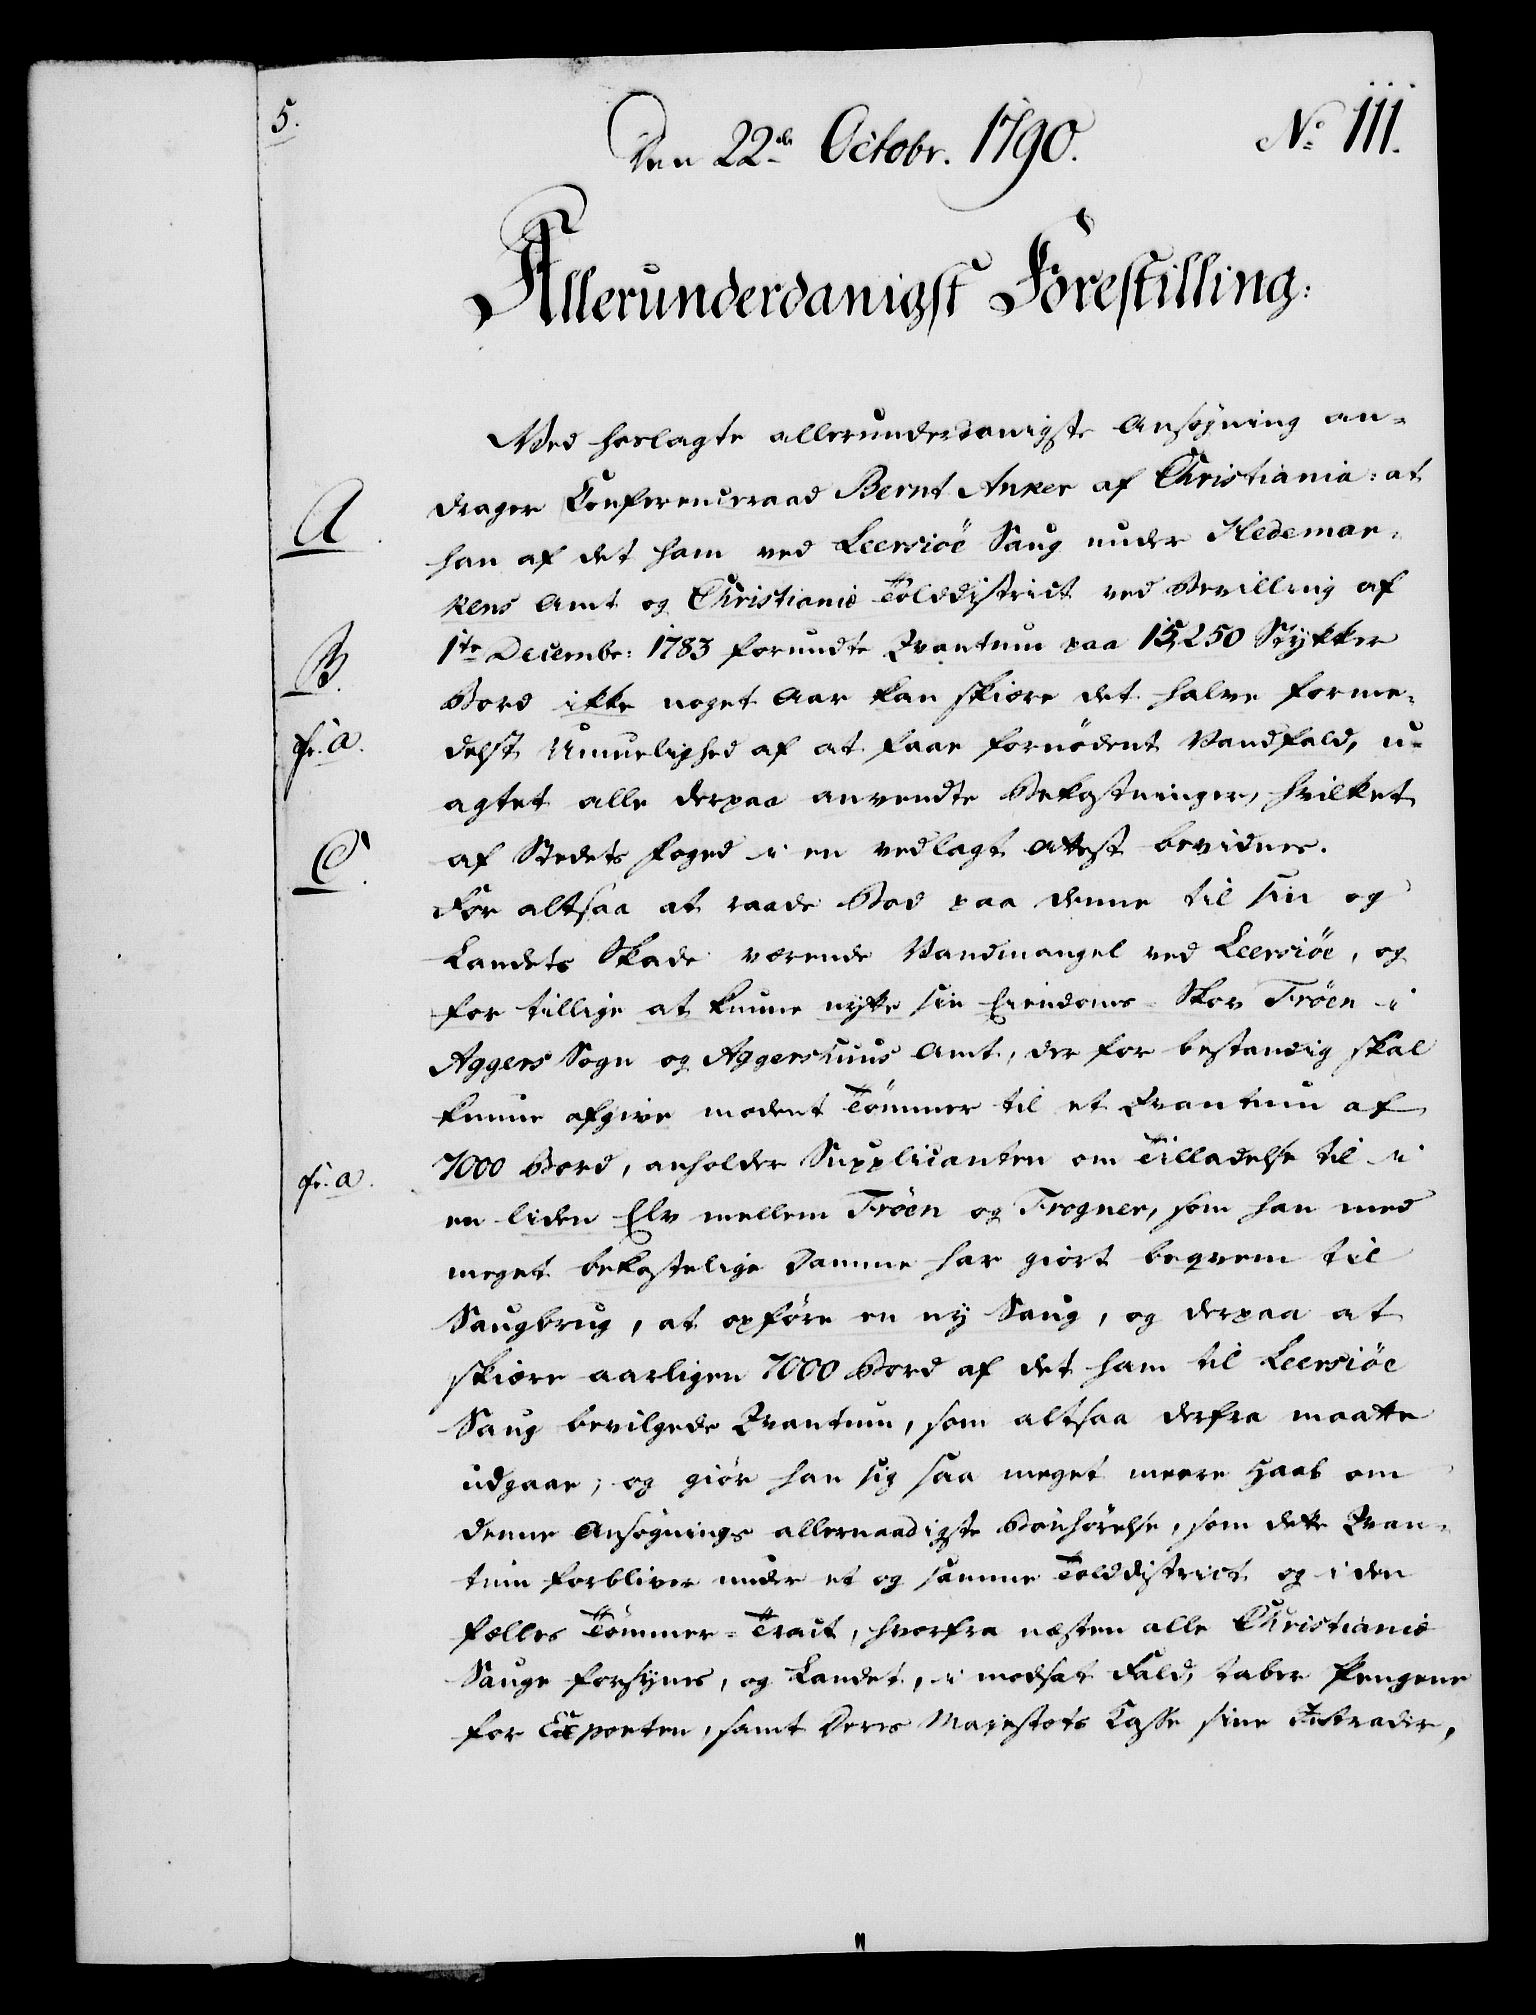 5.
Den 22de Octobr. 1790.
No 111.
Allerunderdanigst Forestilling:
Med hoslagte allerunderdanigste Ansøgning an-
A.
drager Conferenceraad Bernt Anker af Christiania: at
han af det ham ved Leersiøe Saug under Hedemar-
kens Amt og Christianiæ Tolddistrict ved Bevilling af
B.
1te Decembr: 1783 forundte Qvantum paa 15,250 Stykker
Bord ikke noget Aar kan skiære det halve forme-
fr. a.
delst Umuelighed af at faae fornødent Vandfald, u-
agtet alle derpaa anvendte Bekostninger, hvilket
C.
af Stedets Foged i en vedlagt Attest bevidnes.
For altsaa at raade Bod paa denne til sin og
Landets Skade værende Vandmangel ved Leersiøe, og
for tillige at kunne nytte sin Eiendoms-Skov Frøen i
Aggers Sogn og Aggershuus Amt, der for bestandig skal
kunne afgive modent Tømmer til et Qvantum af
fr. a.
7000 Bord, anholder Supplicanten om Tilladelse til i
en liden Elv mellem Frøen og Frogner, som han med
meget bekostelige Damme har giort beqvem til
Saugbrug, at opføre en ny Saug, og derpaa at
skiære aarligen 7000 Bord af det ham til Leersiøe
Saug bevilgede Qvantum, som altsaa derfra maatte
udgaae; og giør han sig saa meget meere Haab om
denne Ansøgnings allernaadigste Bønhørelse, som dette Qvan-
tum forbliver under et og samme Tolddistrict og i den
fælles Tømmer-Tract, hvorfra næsten alle Christianiæ
Sauge forsynes, og Landet, i modsat Fald, taber Pengene
for Exporten, samt Deres Majestæts Casse sine Intrader,